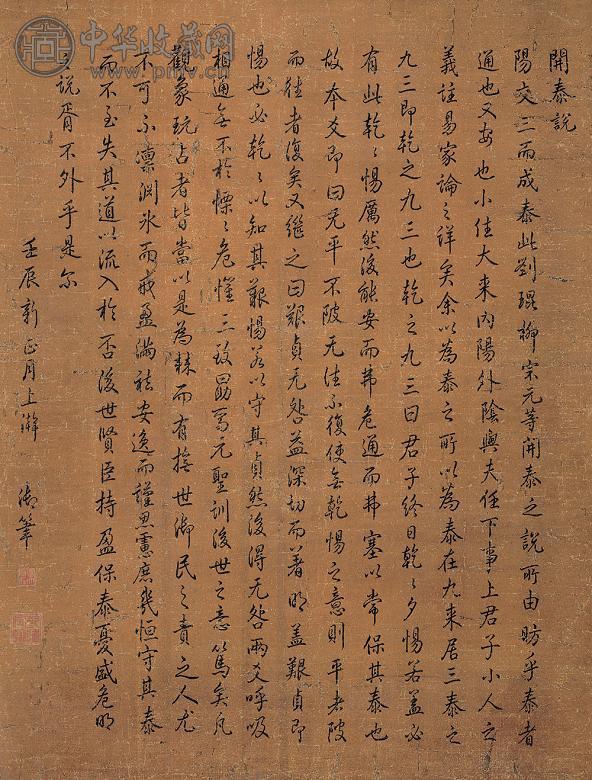 中华收藏网
www.pmv.cn
開泰說
陽交三而成泰此劉琨柳宗元等開泰之說所由昉乎泰者
通也又安也小往大來內陽外陰與夫任下事上君子小人之
義註易家論之詳矣余以為泰之所以為泰在九來居三泰之
九三即乾之九三也乾之九三曰君子終日乾〻夕惕若蓋必
有此乾〻惕厲然後能安而弗危通而弗塞以常保其泰也
故本爻即曰无平不陂无往不復使無乾惕之意則平者陂
而往者復矣又繼之曰艱貞无咎益深切而著明蓋艱貞即
惕也必乾〻以知其艱惕若以守其貞然後得无咎兩爻呼吸
相通無不於慄〻危懼三致勗焉元聖訓後世之意篤矣凡
觀象玩占者皆當以是為棘而有撫世御民之責之人尤
不可不凜淵冰而戒盈滿祛安逸而謹思慮庶幾恒守其泰
而不至失其道以流入於否後世賢臣持盈保泰憂盛危明
之說胥不外乎是爾
壬辰新正月上澣 御筆